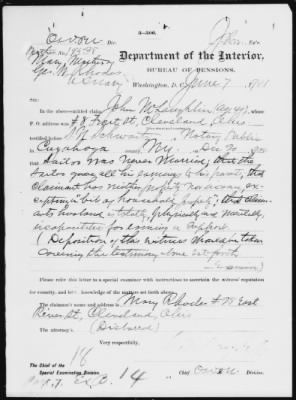 3-306.
Department of the Interior,
BUREAU OF PENSIONS,
Washington, D. C., June 7
Sir:
In the above-entitled claim John McLaughlin (age 44), whose
P. O. address was # 8 Front St., Cleveland, Ohio
testified before Schwartz Notary Public
Cuyahoga Dec 20
Sailor was never Married; that the
Sailor gave all his earnings to his parents; that
claimant has neither property nor income, ex-
cepting a bit of household property; that claim-
ant's husband is totally, physically and mentally
incapacitated for earning a support
(Deposition of this witness should be taken
covering the testimony above set forth
Please refer this letter to a special examiner with instructions to ascertain the witness' reputation
for veracity, and his knowledge of the matters set forth above.
The claimant's name and address is Mary Rhodes # 78 East
River St., Cleveland, Ohio
The attorney's (Disbarred)
Very respectfully,
Chief Division.
The Chief of the
Special Examination Division.
14